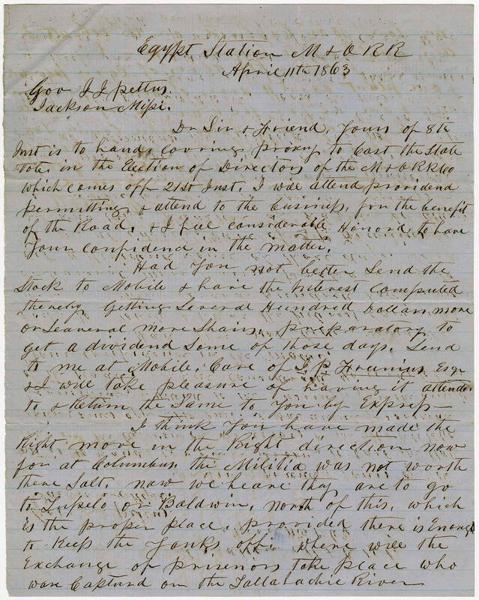 Egypt Station M & O R R
April 11th 1863
Gov J J Pettus
Jackson Mipi.
Dr Sir & Friend, Yours of 8th
Inst is to hand, covering proxy to Cast the State
vote, in the Election of Directors of the M & O R R Co
which comes off 21st Inst. I will attend providend
permitting & attend to the business, for the benefit
of the Road. & I feel considerable Honord to have
Your confidend in the matter.
Had You not better Send the
Stock to Mobile & have the Interest Computed
thereby getting Several Hundred Dollars more
or Leaveral more Shairs, preparatory to
get a dividend Some of those days. Send
to me at Mobile, Care of Esqr
& I will take pleasure of having it attended
to & Return the Same to You by Express
I think You have made the
Right move in the Right direction now
for at Columbus the Militia was not worth
there Salt, now we heare they are to go
to Tupelo or Baldwin, north of this, which
is the proper place, provided there is Enough
to Keep the Yanks off. Where will the
Exchange of prisenors take place who
ware Capturd on the Tallahachie River